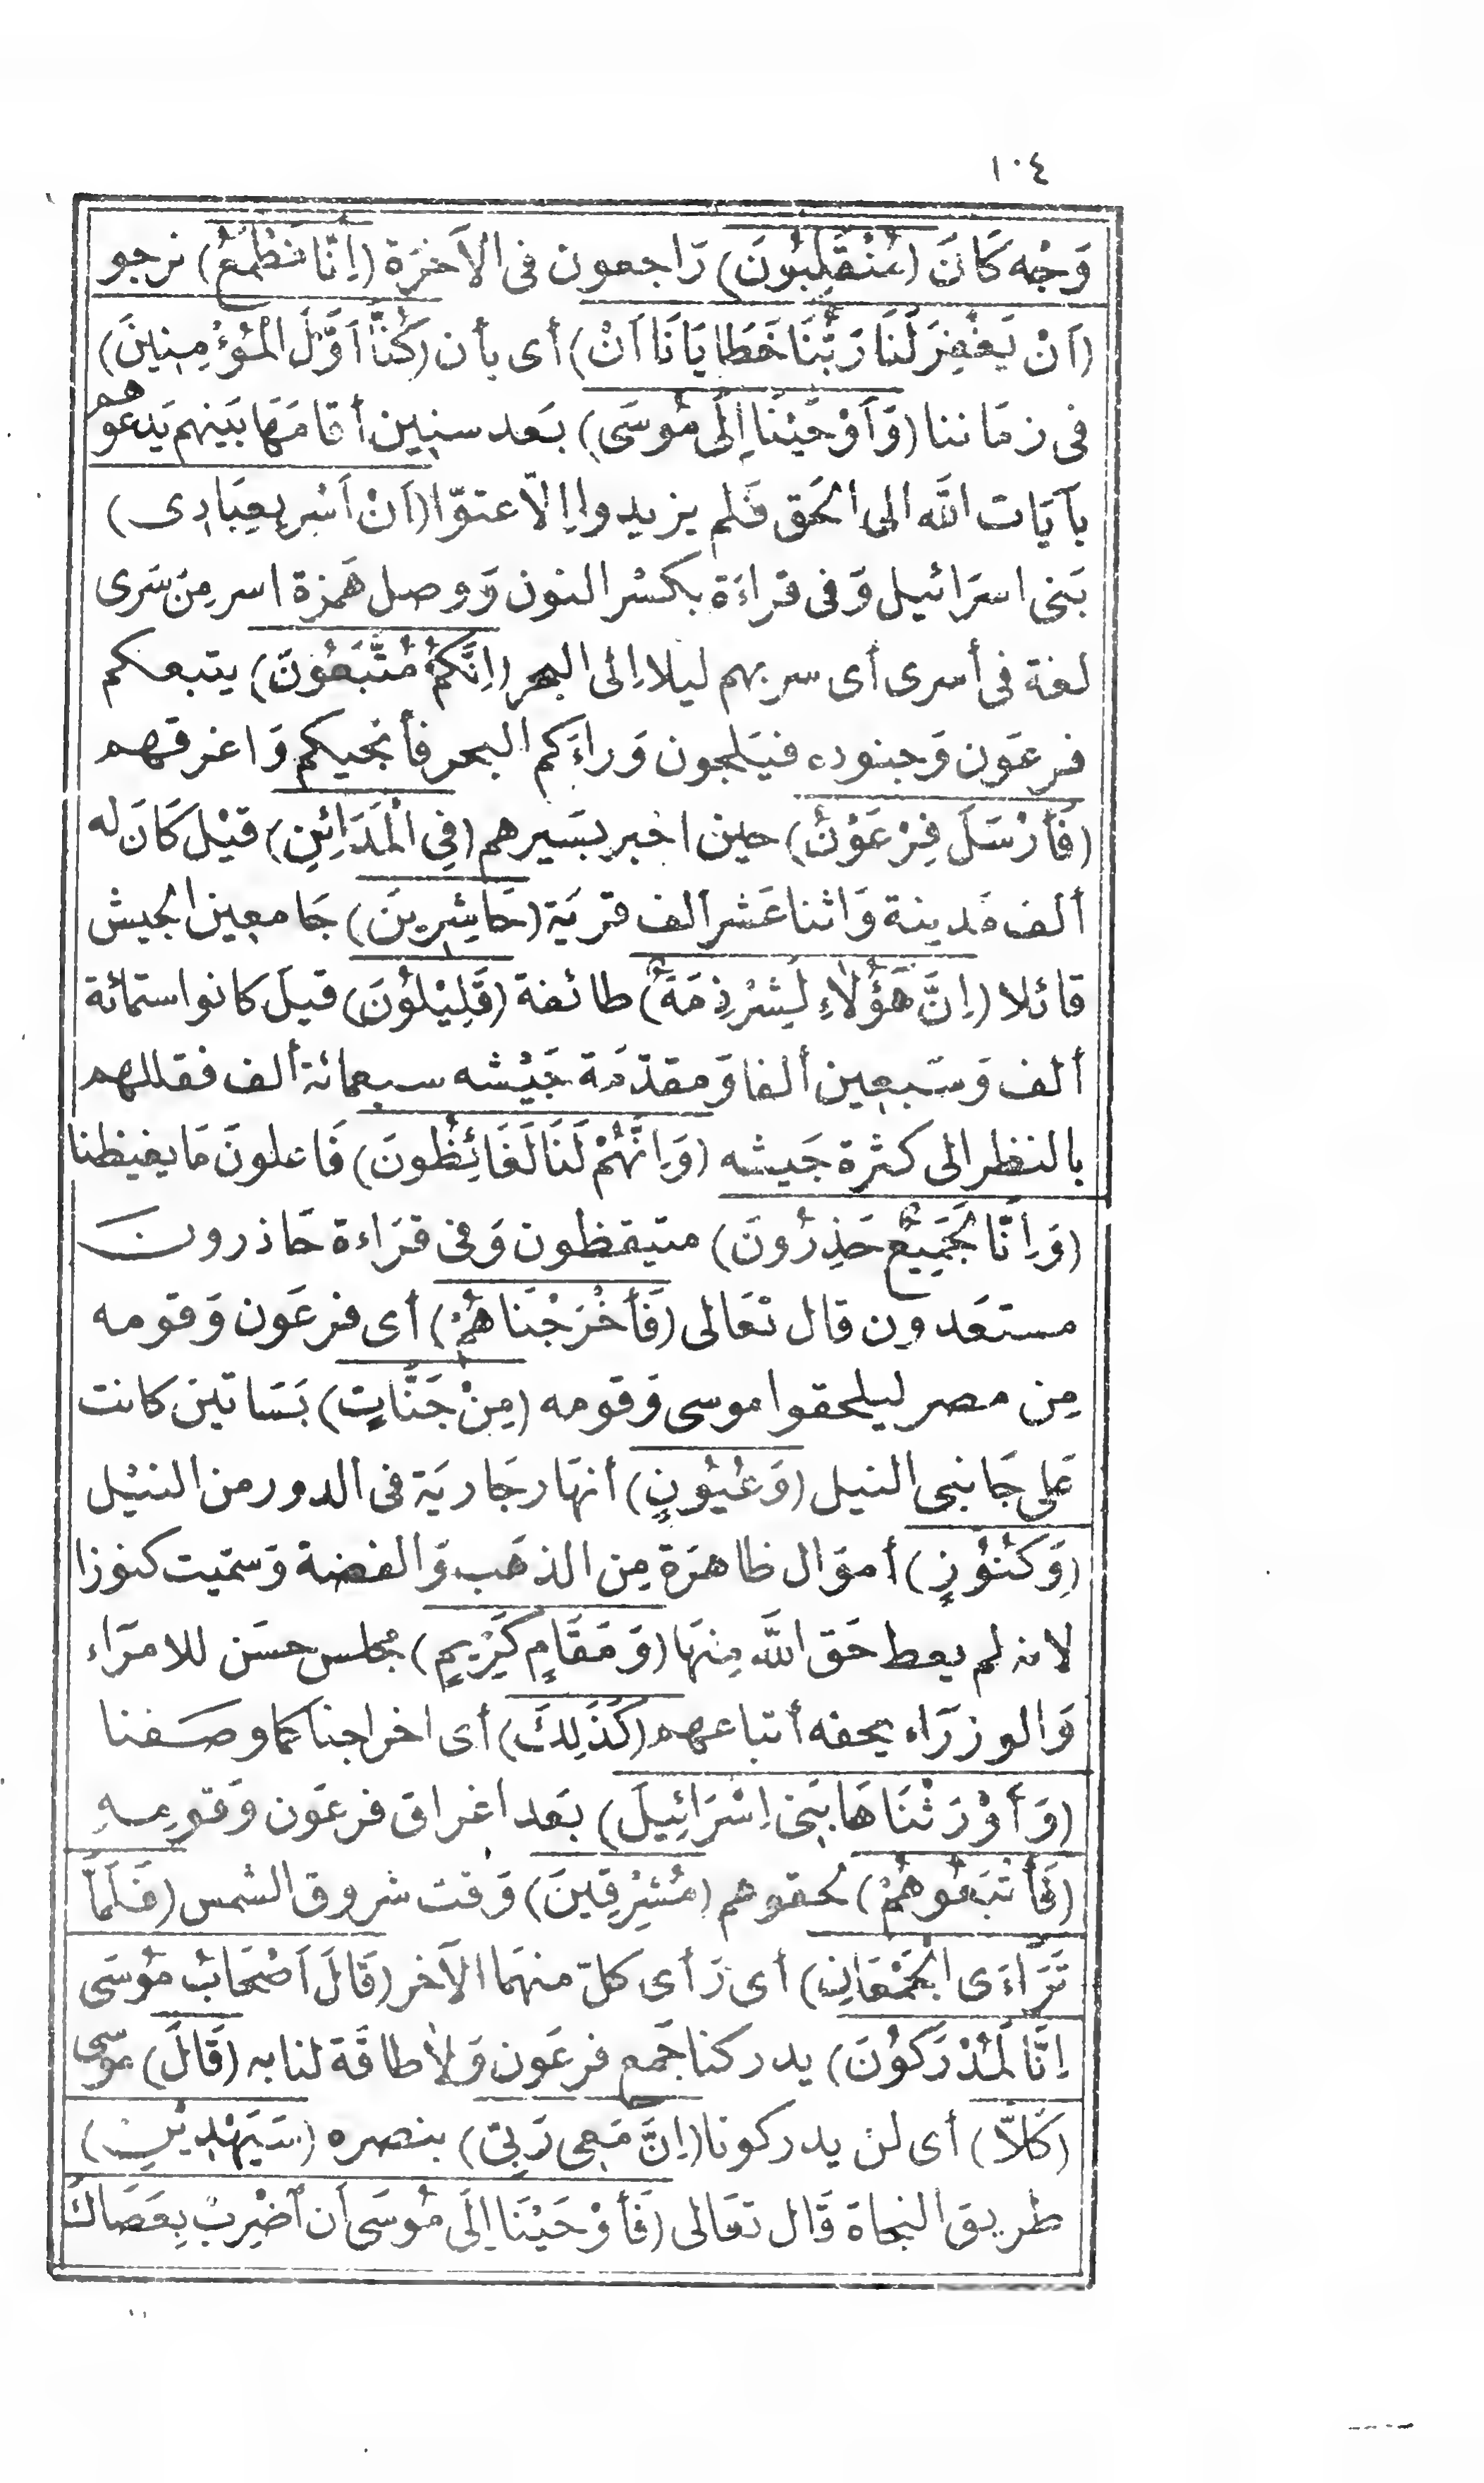 ١٠٤
وَجْه كَانَ (مُنْقَلِبُونَ) رَاجعون فى الآخرَة (اِنَّا نَطْمَعُ) نرجو
(اَنْ يَغْفِرَ لَنَا رَبُّنَا خَطَايَانَا اَنْ) أى بأن (كُنَّا اَوَّلَ الْمُؤْمِنِينَ)
فى زمَاننا (وَاَوْحَيْنَا اِلَى مُوسَى) بعَد سنين أقامَهَا بَينهم يَدعوهم
بآيَات اللّه الى الحَق فَلم يزيدوا اِلاّ عتوّا (اَنْ اَسْرِ بِعِبَادِى)
بَنى اسرَائيل وَفى قراءَة بكسْر النون وَوصل هَمزة اسر مِن سَرى
لغة فى أسرى أى سر بهم ليلا اِلى البحر (اِنَّكُمْ مُتَّبَعُونَ) يتبعكم
فرعَون وَجنوده فيَلجون وَراءَكم البحر فأنجيكم وَاغرقهم
(فَأَرْسَلَ فِرْعَوْنُ) حين اخبر بسَيرهم (فِى الْمَدَائِنِ) قيْل كَانَ له
ألف مَدينة وَاثنا عَشر ألف قريَة (حَاشِرِينَ) جَامعين الجيش
قائلا (اِنَّ هَؤُلَاءِ لَشِرْذِمَةٌ) طائفة (قَلِيْلُونَ) قيلَ كانوا ستمائة
ألف وَسَبعين ألفا وَمقدّمَة جَيْشه سبعمائة ألف فقللهم
بالنظر الى كثرة جَيشه (وَاِنَّهُمْ لَنَا لَغَائِظُونَ) فَاعلونَ مَا يغيظنا
(وَاِنَّا لَجَمِيعٌ حَذِرُونَ) متيقظون وَفى قرَاءة حَاذرون
مستعَدون قال تعَالى (فَأَخْرَجْنَاهُمْ) أى فرعَون وَقومه
مِن مصر ليلحقوا موسى وَقومه (مِنْ جَنَّاتٍ) بَسَاتين كانت
عَلى جَانبى النيل (وَعُيُونٍ) أنهَار جَاريَة فى الدور من النيْل
(وَكُنُوْزٍ) أموَال ظاهرَة مِن الذهَب وَالفضة وَسمّيت كنوزا
لانه لم يعط حَق اللّه مِنهَا (وَمَقَامٍ كَرِيْمٍ) مجلس حسَن للامرَاء
وَالوزرَاء يحفه أتباعهم (كَذَلِكَ) أى اخراجنا كما وصفنا
(وَأَوْرَثْنَاهَا بَنِى اِسْرَائِيلَ) بعَد اغراق فرعَون وَقومِهِ
(فَأَتْبَعُوهُمْ) لحقوهم (مُشْرِقِينَ) وَقت شروق الشمس (فَلَمَّا
تَرَاءَى الْجَمْعَانِ) أى رَأى كلّ منهمَا الآخر (قَالَ اَصْحَابُ مُوسَى
اِنَّا لَمُدْرَكُوْنَ) يدركنا جَمع فرعَون وَلاَ طاقَة لنا به (قَالَ) موسى
(كَلَّا) أى لن يدركونا (اِنَّ مَعِى رَبِّى) بنصره (سَيَهْدِيْنِ)
طريق النجاة قَال تعَالى (فَأَوْحَيْنَا اِلَى مُوسَى أَن اضْرِبْ بِعَصَاكَ